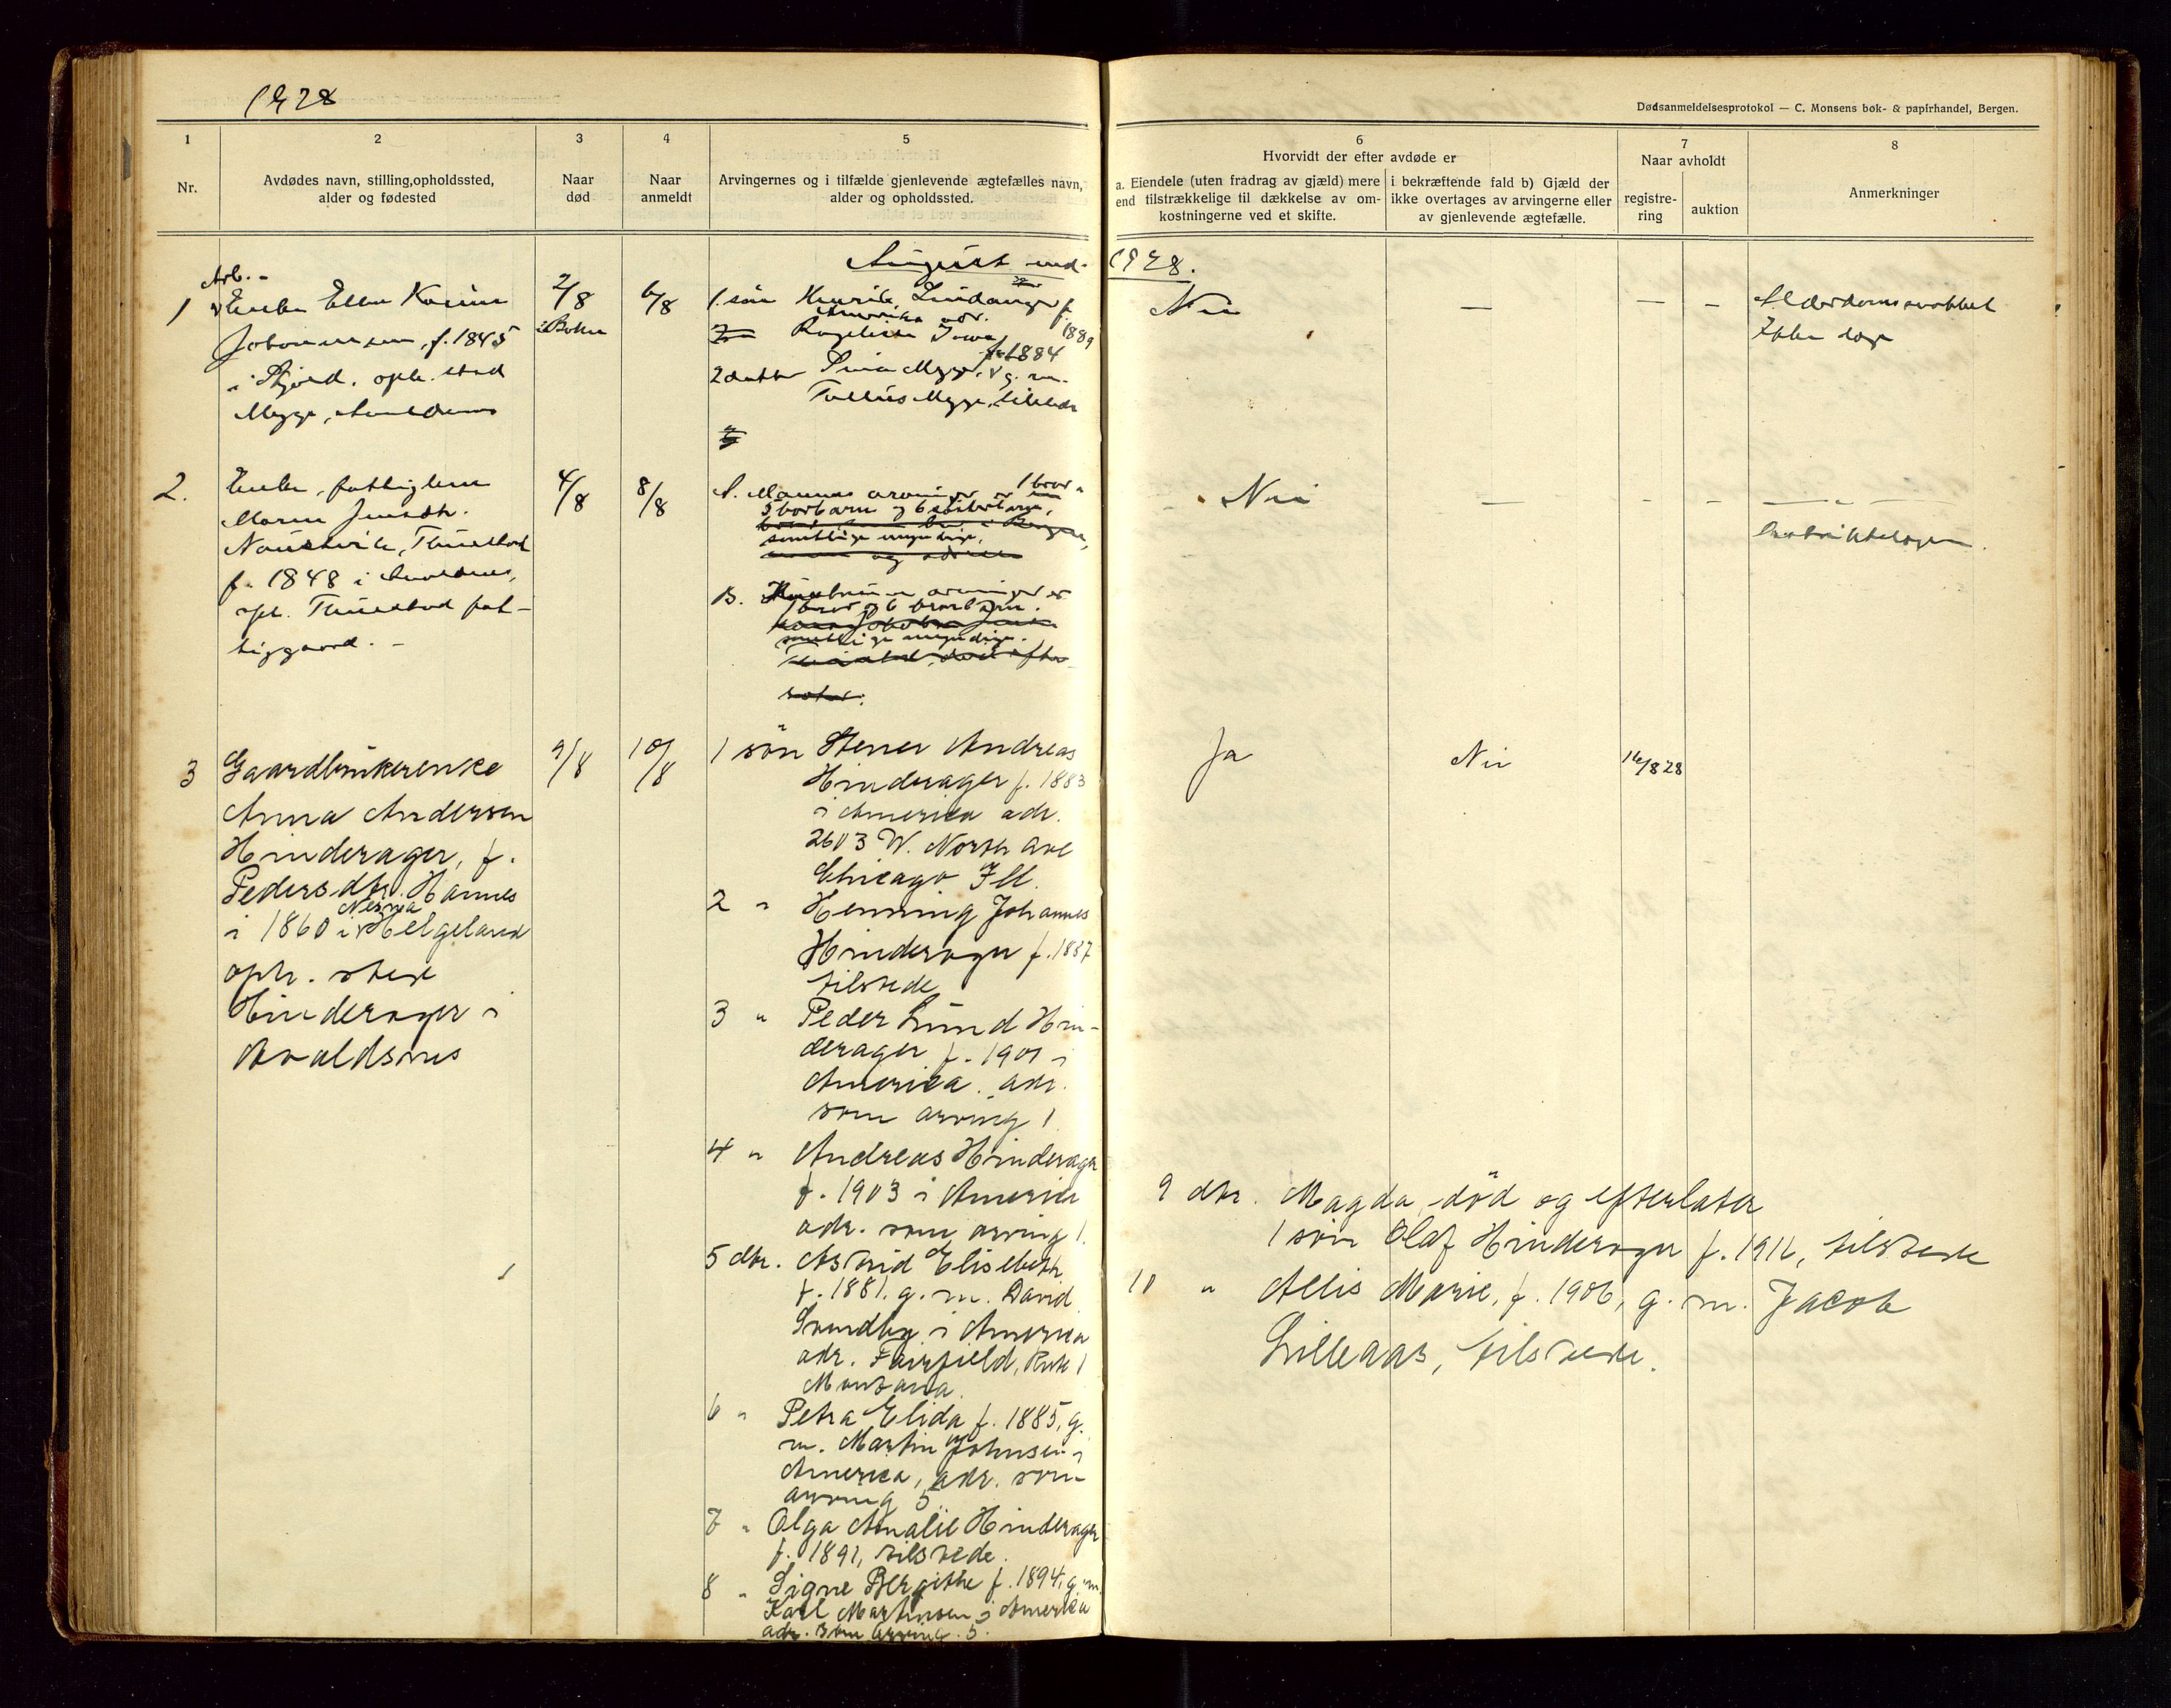 1928
Dødsanmeldelsesprotokol — C. Monsens bok- & papirhandel, Bergen.
1
2
3
4
5
6
7
8
Nr.
Avdødes navn, stilling, opholdssted,
alder og fødested
Naar
død
Naar
anmeldt
Arvingernes og i tilfælde gjenlevende ægtefælles navn,
alder og opholdssted.
Hvorvidt der efter avdøde er
a. Eiendele (uten fradrag av gjæld) mere
end tilstrækkelige til dækkelse av om-
kostningerne ved et skifte.
i bekræftende fald b) Gjæld der
ikke overtages av arvingerne eller
av gjenlevende ægtefælle.
Naar avholdt
registre-
ring
auktion
Anmerkninger
August md. 1928.
Arb.-
1 Enke Ellen Karine
Johannessen, f. 1845
i oph. sted
Mygge,
2/8
i Bokn
6/8
1. søn Henrik f.
1889
Amerika adr.
Iowa
f. 1884
2 datter Mygge, g. m.
Mygge, tilstede
Nei
—
—
–
Alderdomssvakket
2. Enke, fattiglem
Maren
Naustvik,
f. 1848 i
oph. fat-
tiggaard. -
4/8
8/8
A. Mannens arvinger er 1 bror
5 brorbarn og 6 søsterbarn,
samtlige myndige,
B. arvinger er
1 bror og 6 brorbarn.
samtlige myndige.
Nei
—
-
-
3 Gaardbrukerenke
Anna Andersen
Hinderager, f.
Pedersdtr. Hannes
i 1860 i Nesna Helgeland
oph. sted
Hinderager i
Avaldsnes
9/8
10/8
1 søn Stener Andreas
Hinderager f. 1883
i Amerika adr.
2603 W. North Ave
Chicago Ill.
2 " Henning Johannes
Hinderager f. 1887
tilstede
3 " Peder Lund Hin-
derager f. 1901 i
America. adr.
som arving 1
4 " Andreas Hinderager
f. 1903 i America
adr. som arving 1.
5 dtr. Astrid Elisebeth
f. 1881. g. m. David
Sundby i America
adr. Fairfield, Rute 1
Montana.
6 " Petra Elida f. 1885, g.
m. Martin Johnsen i
America, adr. som
arving 5
7 " Olga Amalie Hinderager
f. 1891, tilstede.
8 " Signe Bergithe f. 1894, g. m.
Karl Martinsen i Amerika
adr. som arving 5.
Ja
Nei
16/8 28
9 dtr. Magda, død og efterlater
1 søn Olaf Hinderager f. 1911, tilstede
10 " Allis Marie, f. 1906, g. m. Jacob
Lilleaas, tilstede.